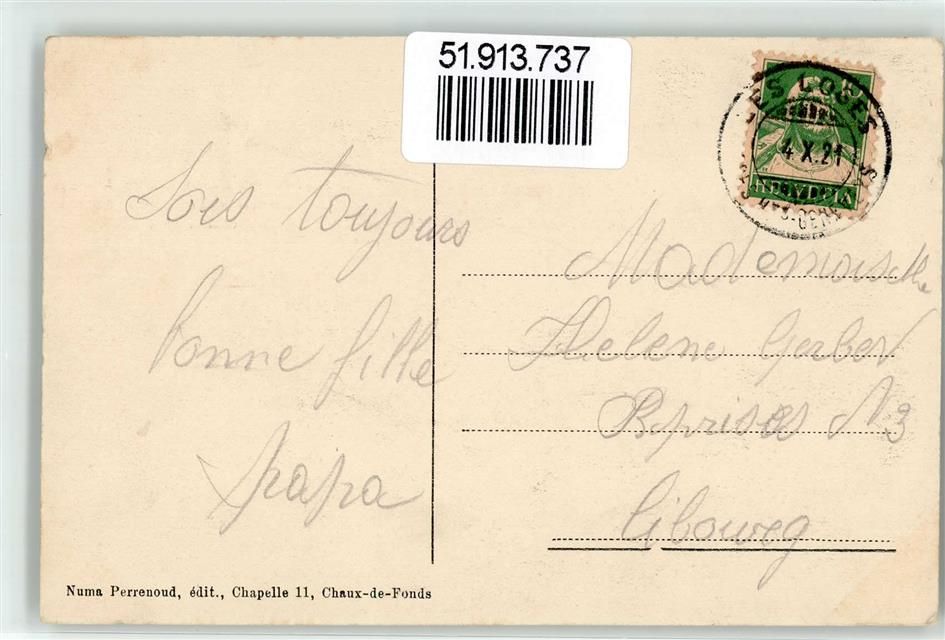 51.913.737
LES LOGES
4.X.21
HELVETIA
Sois toujours
bonne fille
papa
Mademoiselle
Helene Gerber
Reprises N 3
Cibourg
Numa Perrenoud, édit., Chapelle 11, Chaux-de-Fonds